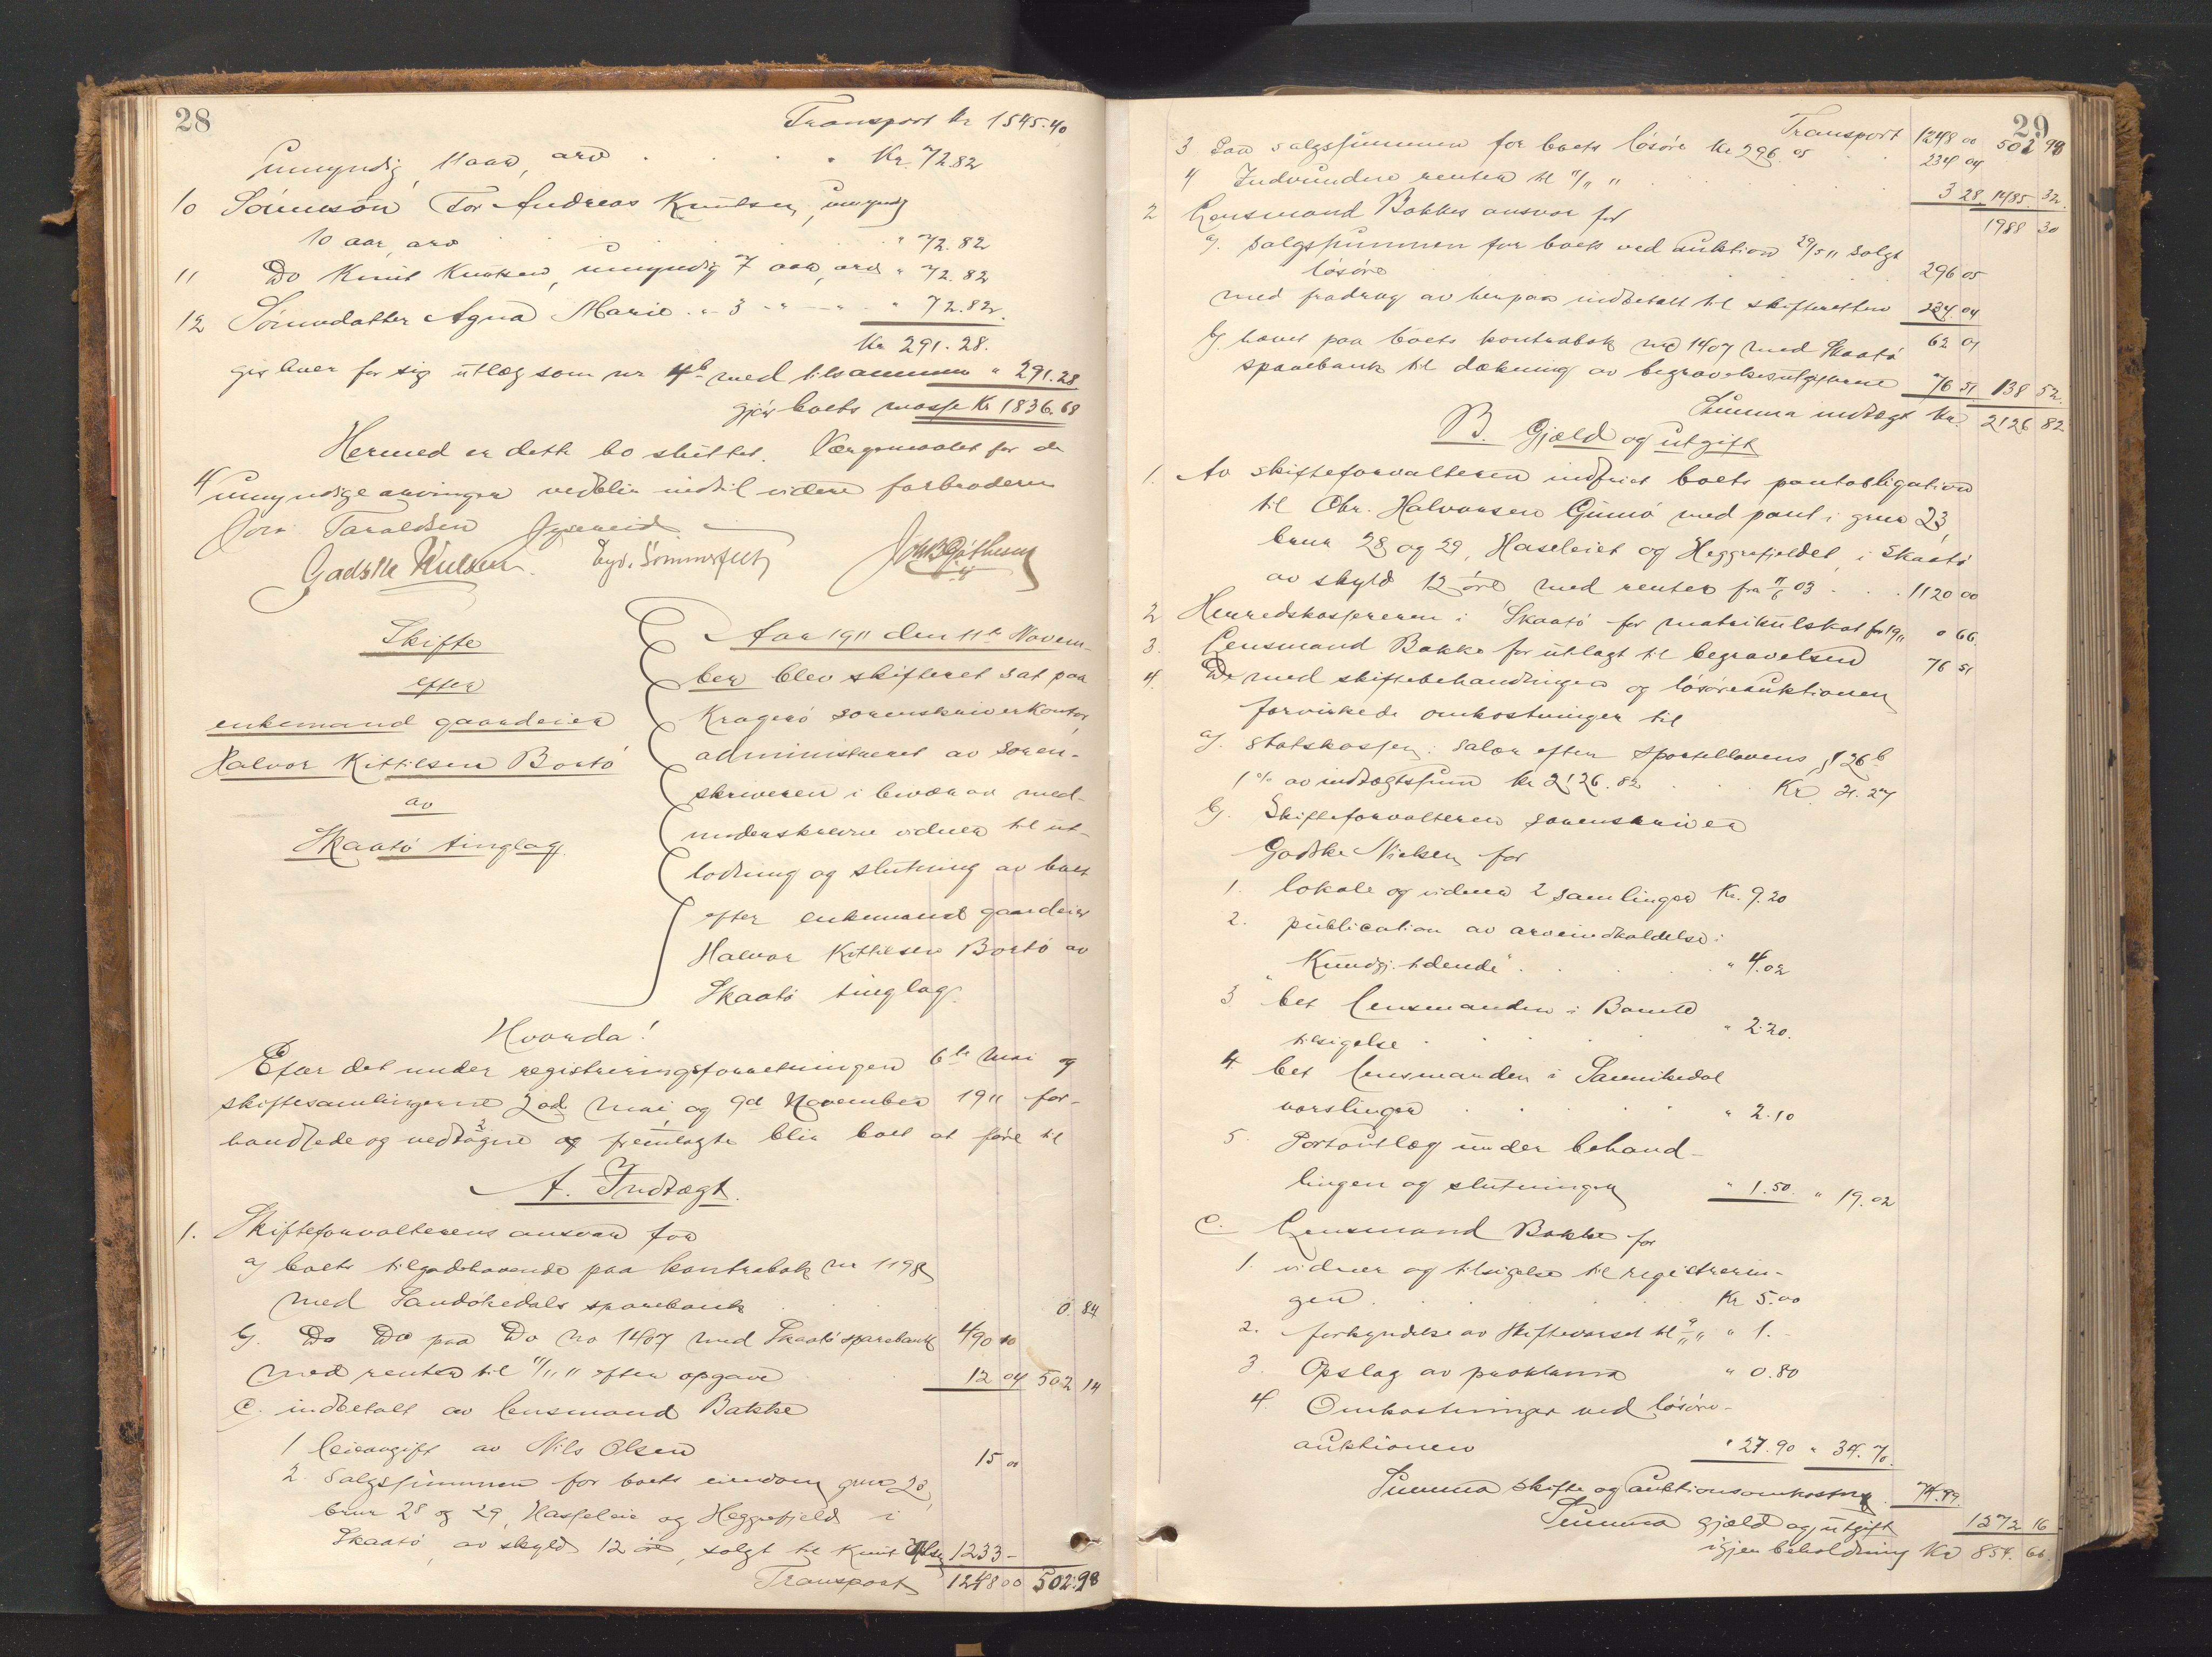 28
Transport kr 1545.40
umyndig, 11 aar, arv . . . . Kr. 72.82
10 Sønnesøn Tor Andreas Knutsen, umyndig
10 aar, arv . . . . . . " 72.82
11 Do Knut Knutsen, umyndig 7 aar, arv " 72.82
12 Sønnedatter Agna Marie " 3 " — " " 72.82.
Kr 291.28.
gir hver for sig utlæg som nr 4b med tilsammen " 291.28
gjør boets masse Kr 1836.68
Hermed er dette bo sluttet. Værgemaalet for de
4 umyndige arvinger vedblir indtil videre farbroderen
Jon Taraldsen
Godske Nielsen. Eyv. Sømmerfelt
Skifte
efter
enkemand gaardeier
Halvor Kittilsen Bortø
av
Skaatø tinglag.
Aar 1911 den 11te Novem-
ber blev skifteret sat paa
Kragerø sorenskriverkontor,
administreret av soren-
skriveren i bivær av med-
underskrevne vidner til ut-
lodning og slutning av boet
efter enkemand gaardeier
Halvor Kittilsen Bortø av
Skaatø tinglag.
Hvorda!
Efter det under registreringsforretningen 6te Mai og
skiftesamlingerne 20de Mai og 9de November 1911 for-
handlede og vedtagne og fremlagte blir boet at føre til
A. Indtægt.
1. Skifteforvalterens ansvar for
a) boets tilgodehavende paa kontrabok nr 1198
med Sandøkedals sparebank . . . 0.84
b). Do Do paa Do no 1407 med Skaatø sparebank 490 10
med renter til 11/11 11 efter opgave 12 04 502 14
C. indbetalt av lensmand Bakke
1 leieavgift av Nils Olsen 15 00
2. Salgssummen for boets eiendom gnr 23,
bnr 28 og 29, Hasseleie og Heggefjeld i
Skaatø, av skyld 12 øre, solgt til Knut Olsen 1233 -
Transport 1248 00 502.98
29
Transport 1248 00 502 98
3 Paa salgssummen for boets løsøre kr 296.05 . . 234 04
4 Indvundne renter til 11/11 11 . . . . 3 28 1485.32.
1988 30
2 Lensmand Bakkes ansvar for
a). salgssummen for boets ved auktion 29/5 11 solgt
løsøre . . . 296 05
med fradrag av herpaa indbetalt til skifteretten 234.04
62 01
b). hævet paa boets kontrabok no 1407 med Skaatø
sparebank til dækning av begravelsesutgifterne 76 51 138 52.
Summa indtægt kr. 2126 82
B. Gjæld og utgift
1. Av skifteforvalteren indfriet boets pantobligation
til Chr. Halvorsen Gumø med pant i gnr 23,
bnr 28 og 29, Haseleiet og Heggefjeldet, i Skaatø
av skyld 12 øre med renter fra 11/6 03 . . . 1120 00
2 Herredskassereren i Skaatø for matrikulskat for 1911 0 66.
3. Lensmand Bakke for utlagt til begravelsen 76 51
4. De med skiftebehandlingen og løsøreauktionen
forvirkede omkostninger til
a). Statskassen: salær efter sportellovens § 26 b
1 % av indtægtssum kr 2126.82 . . Kr 21.27
b). Skifteforvalteren sorenskriver
Godske Nielsen for
1. lokale og vidner 2 samlinger Kr. 9.20
2. publication av arveindkaldelse i
"Kundgj. tidende" . . . " 4.02
3 bet lensmanden i Bamle
tilsigelse . . . . " 2.20.
4 bet lensmanden i Sannikedal
varslinger . . . . " 2.10
5. Portoutlæg under behand-
lingen og slutningen " 1.50. " 19.02
C. Lensmand Bakke for
1. vidner og tilsigelse til registrerin-
gen . . . . . Kr 5.00
2. forkyndelse av skiftevarsel til 9/11 11 " 1. -
3. Opslag av proklama " 0.80
4. Omkostninger ved løsøre-
auktionen " 27.90 " 34.70.
Summa skifte og auktionsomkostn. 74.99
Summa gjæld og utgift 1272 16
igjen beholdning Kr 854.66.